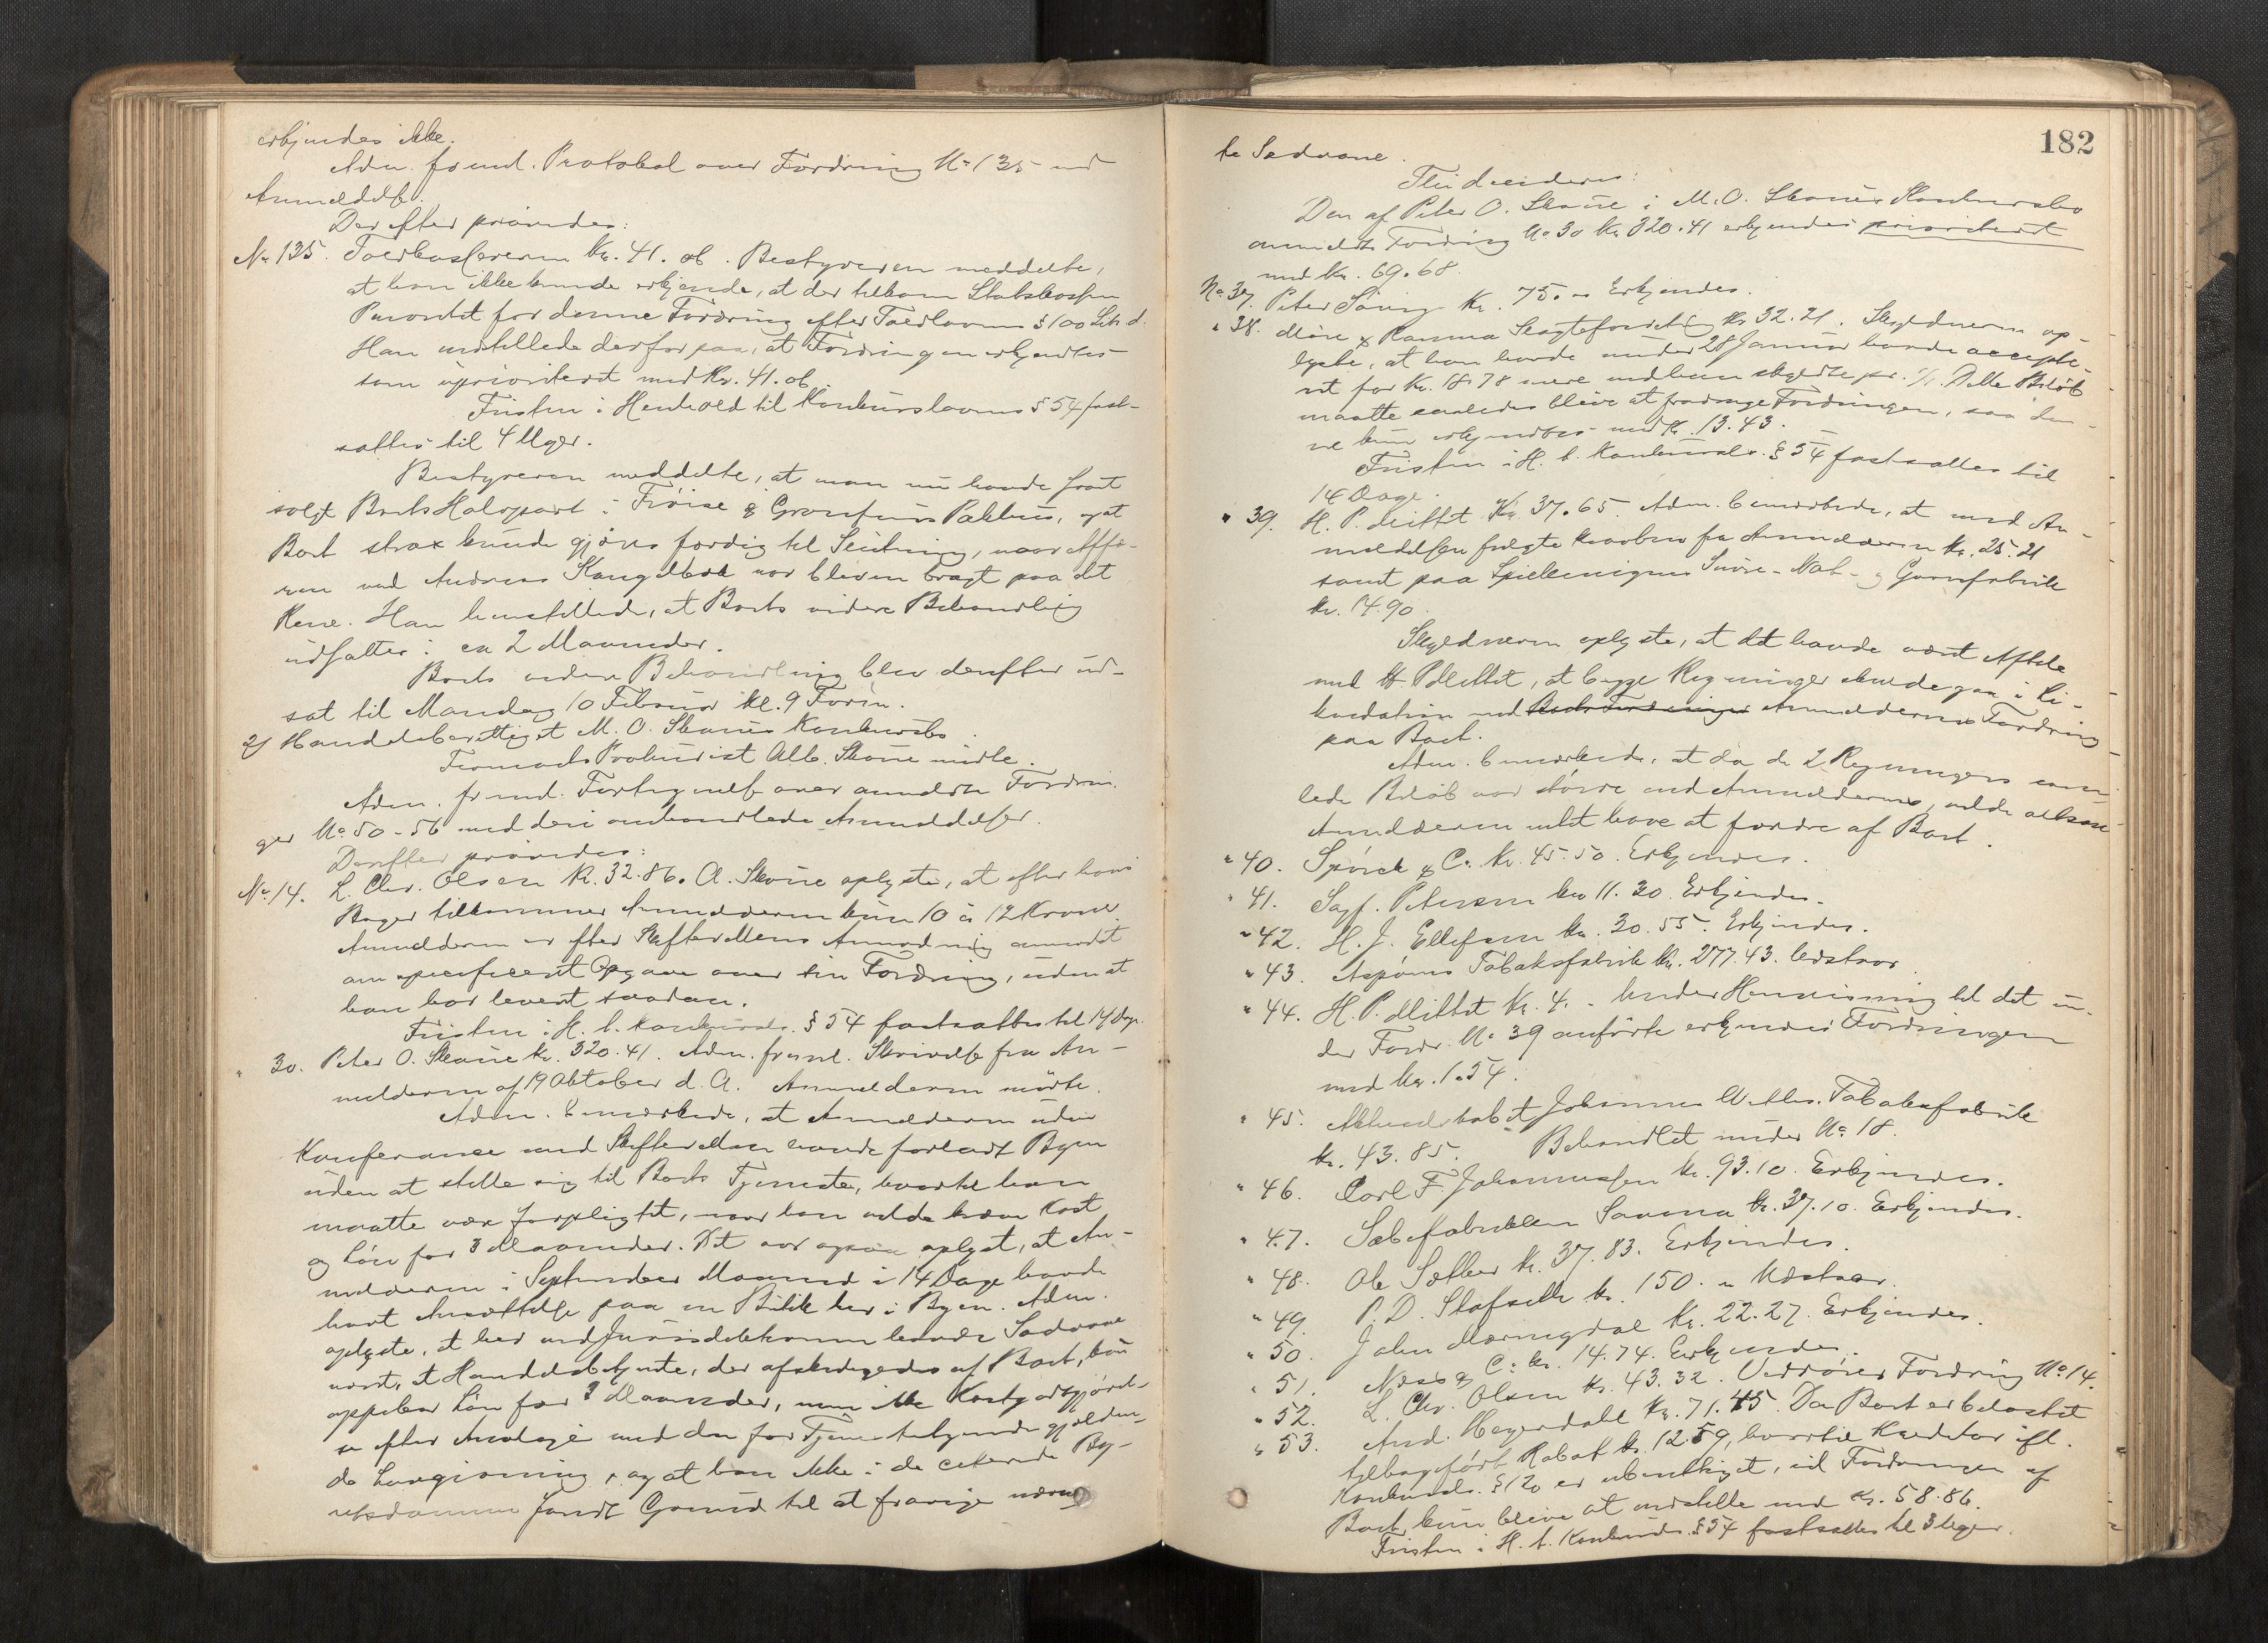 erkjendes ikke.
Adm. freml. Protokol over Fordring No 135 med
Anmeldelse.
Derefter prøvedes:
No 135. Toldkassereren Kr. 41.06. Bestyreren meddelte,
at han ikke kunde erkjende, at der tilkom Statskassen
Prioritet for denne Fordring efter Toldlovens § 100 Litr. d.
Han indstillede derfor paa, at Fordringen erkjendtes
som uprioriteret med Kr. 41.06.
Fristen i Henhold til Konkurslovens § 54 fast-
sattes til 4 Uger.
Bestyreren meddelte, at man nu havde faat
solgt Boets Halvpart i Pakhus, og at
Boet strax kunde gjøres færdig til Slutning, naar Affæ-
ren med Andreas var bleven bragt paa det
Rene. Han henstillede, at Boets videre Behandling
udsattes i ca 2 Maaneder.
Boets videre Behandling blev derefter ud-
sat til Mandag 10 Februar Kl. 9 Form.
2/ Handelsberettiget M. O. Skaues Konkursbo
Firmaets Prokurist Alb. Skaue mødte.
Adm. freml. Fortegnelse over anmeldte Fordrin-
ger No 50-56 med deri omhandlede Anmeldelser.
Derefter prøvedes:
No 14. L. Chr. Olsen Kr. 32.86. A. Skaue oplyste, at efter hans
Bøger tilkommer Anmelderen kun 10 à 12 Kroner.
Anmelderen er efter Skifterettens Anmodning anmodet
om specificeret Opgave over sin Fordring, uden at
han har leveret saadan.
Fristen i H. t. Konkursl. § 54 fastsattes til 14 Dage.
" 30. Peter O. Skaue Kr. 320.41. Adm. freml. Skrivelse fra An-
melderen af 19 Oktober d. A. Anmelderen mødte.
Adm. bemærkede, at Anmelderen uden
Konferance med Skifteretten havde forladt Byen
uden at stille sig til Boets Tjeneste, hvortil han
maatte være forpligtet, naar han vilde kræve Kost
og Løn for 3 Maaneder. Det var ogsaa oplyst, at An-
melderen i September Maaned i 14 Dage havde
havt Ansættelse paa en Butik her i Byen. Adm.
oplyste, at her ved Jurisdiktionen havde Sædvane
været, at Handelsbetjente, der afskediges af Boet, kun
oppebar Løn for 3 Maaneder, men ikke Kostgodtgjørel-
se efter Analogi med den for Tjenestetyende gjælden-
de Lovgivning, og at han ikke i de citerede By-
retsdomme fandt Grund til at fravige nævn-
182
te Sædvane.
Thi decideres:
Den af Peter O. Skaue i M. O. Skaues Konkursbo
anmeldte Fordring No 30 Kr. 320.41 erkjendes prioriteret
med Kr. 69.68.
No 37. Peter Kr. 75.- Erkjendes.
" 38. Møre & Ramma Kr. 32.21. Skyldneren op-
lyste, at han havde under 28 Januar havde accepte-
ret for Kr. 18.78 mere end han skyldte pr. Dette Beløb
maatte saaledes blive at fradrage Fordringen, saa den-
ne kun erkjendtes med Kr. 13.43.
Fristen i H. t. Konkursl. § 54 fastsattes til
14 Dage.
" 39. H. P. Mittet Kr. 37.65. Adm. bemærkede, at med An-
meldelsen fulgte Krav fra Anmelderen Kr. 25.21
samt paa Snøre- Not- og Garnfabrik
Kr. 14.90.
Skyldneren oplyste, at det havde været Aftale
med H. P. Mittet, at begge Regninger skulde gaa i Li-
kvidation med Anmelderens Fordring
paa Boet.
Adm. bemærkede, at da de 2 Regningers sam-
lede Beløb var større end Anmelderens, vilde altsaa
Anmelderen intet have at fordre af Boet.
" 40. Spørck & Co. Kr. 45.50. Erkjendes.
" 41. Sigf. Petersen Kr. 11.30. Erkjendes.
" 42. H. J. Ellefsen Kr. 30.55. Erkjendes.
" 43. Tobaksfabrik Kr. 277.43. Udstaar.
" 44. H. P. Mittet Kr. 4.-. Under Henvisning til det un-
der Fordr. No 39 anførte erkjendes Fordringen
med Kr. 1.54.
" 45. Aktieselskabet Johannes Tobaksfabrik
Kr. 43.85. Behandlet under No 18.
" 46. Carl F. Johannessen Kr. 93.10. Erkjendes.
" 47. Sæbefabrikken Savona Kr. 37.10. Erkjendes.
" 48. Ole Sæther Kr. 37.83. Erkjendes.
" 49. P. D. Slafselle Kr. 150.- Udstaar.
" 50. John Kr. 22.27. Erkjendes.
" 51. Næss & Co. Kr. 14.74. Erkjendes.
" 52. L. Chr. Olsen Kr. 43.32. Vedrører Fordring No 14.
" 53. And. Heyerdahl Kr. 71.45. Da Boet er belastet
tilbageført Rabat Kr. 12.59, hvortil Kreditor ifl.
Konkursl. § 120 er uberettiget, vil Fordringen af
Boet kun blive at indstille med Kr. 58.86.
Fristen i H. t. Konkursl. § 54 fastsattes til 3 Uger.